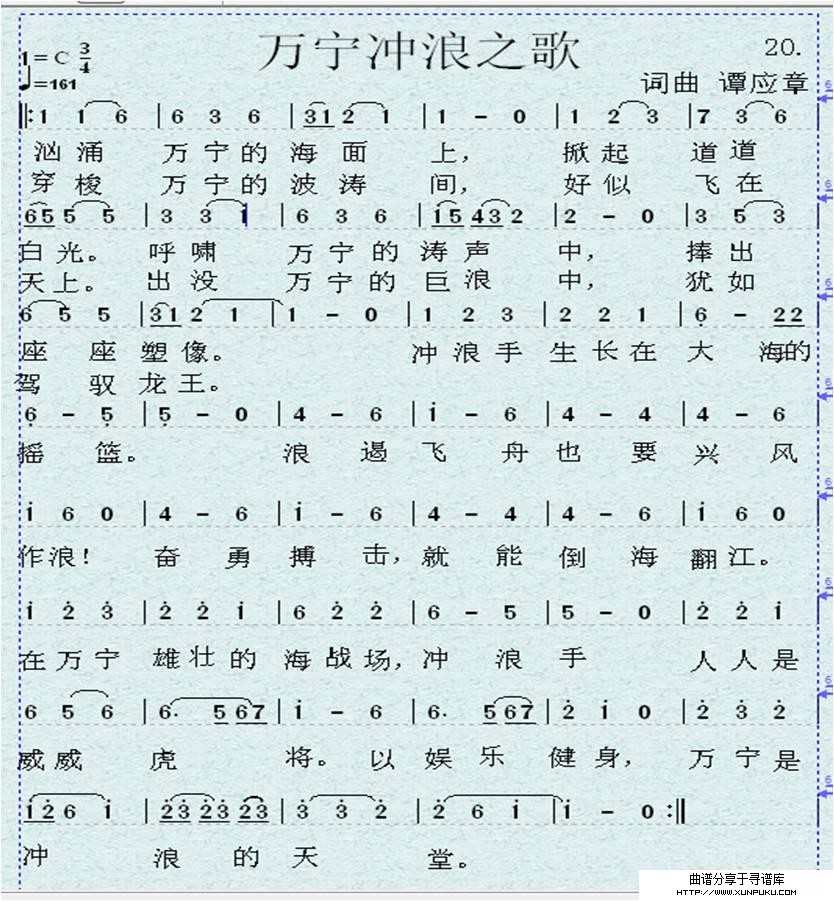 万宁冲浪之歌
20.
1=C 3/4
♩=161
词曲 谭应章
‖:1 1 6 | 6 3 6 | 31 2 1 | 1 - 0 | 1 2 3 | 7 3 6
汹涌 万宁的海面 上， 掀起 道道
穿梭 万宁的波涛 间， 好似 飞在
65 5 5 | 3 3 1 | 6 3 6 | 15 432 | 2 - 0 | 3 5 3
白光。 呼啸 万宁的涛声 中， 捧出
天上。 出没 万宁的巨浪 中， 犹如
6 5 5 | 31 2 1 | 1 - 0 | 1 2 3 | 2 2 1 | 6̣ - 22
座 座塑像。 冲浪手生长在大 海的
驾 驭龙王。
6̣ - 5̣ | 5̣ - 0 | 4 - 6 | i - 6 | 4 - 4 | 4 - 6
摇 篮。 浪 遏飞 舟也 要兴 风
i 6 0 | 4 - 6 | i - 6 | 4 - 4 | 4 - 6 | i 6 0
作浪！ 奋 勇搏 击，就 能倒 海翻江。
i 2̇ 3̇ | 2̇ 2̇ i | 6 2̇ 2̇ | 6 - 5 | 5 - 0 | 2̇ 2̇ i
在万宁 雄壮的海战场，冲 浪手 人人是
6 5 6 | 6. 5 67 | i - 6 | 6. 5 67 | 2̇ i 0 | 2̇ 3̇ 2̇
威威 虎 将。以 娱乐 健身， 万宁是
i2̇ 6 i | 2̇3̇ 2̇3̇ 2̇3̇ | 3̇ 3̇ 2̇ | 2̇ 6 i | i - 0 :‖
冲 浪的天 堂。
曲谱分享于寻谱库
HTTP://WWW.XUNPUKU.COM